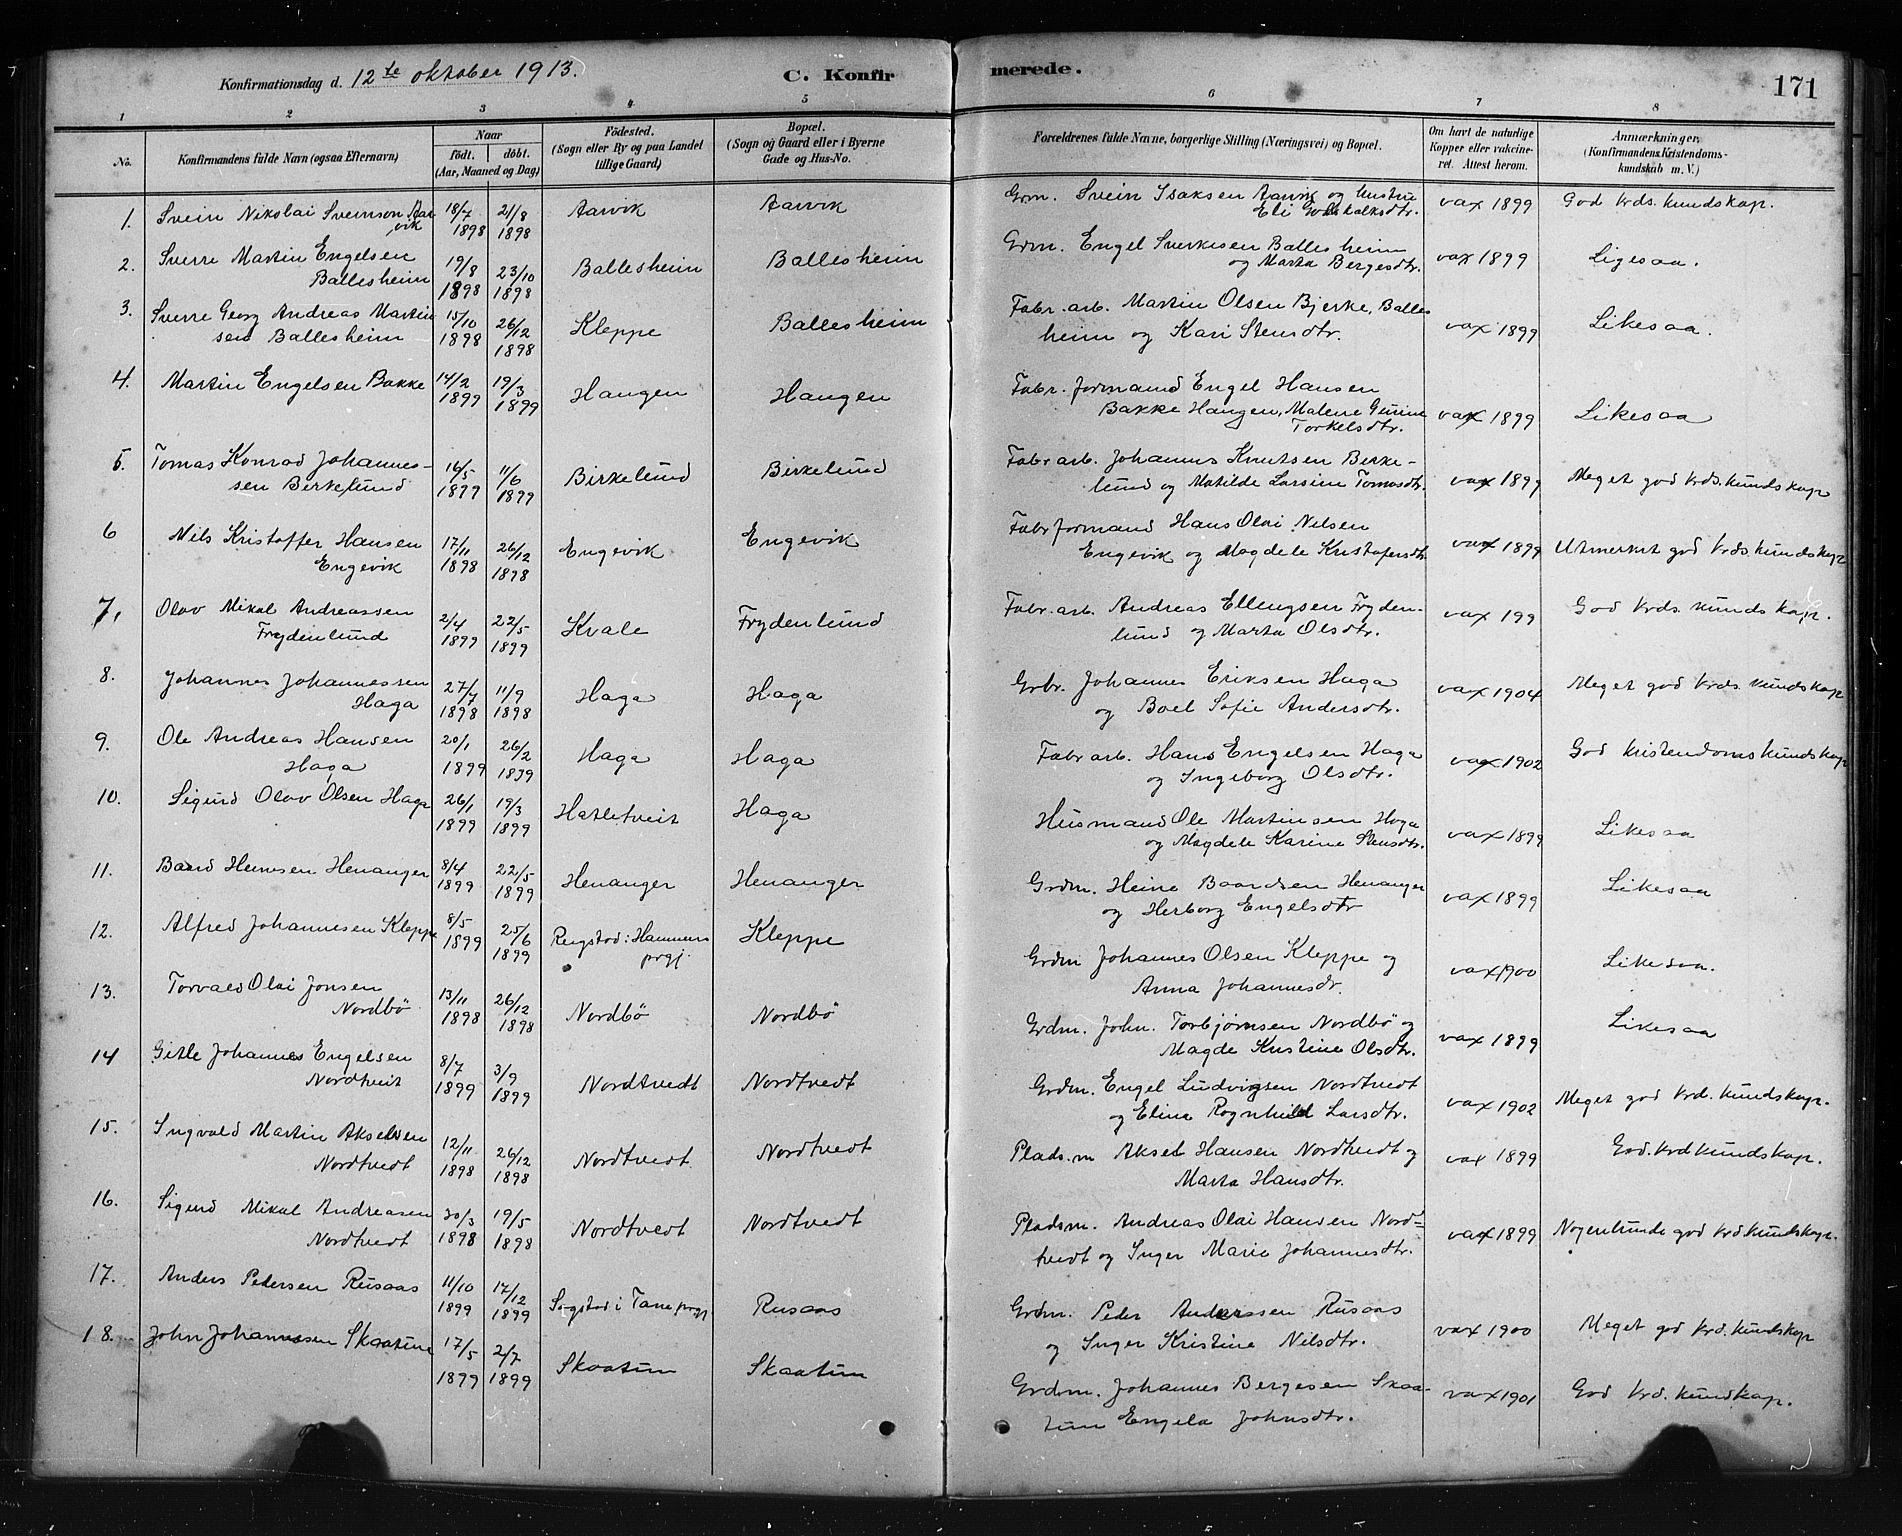 Konfirmationsdag d. 12te oktober 1913.
C. Konfirmerede.
171
1 2 3 4 5 6 7 8
No.
Konfirmandens fulde Navn (ogsaa Efternavn)
Naar
födt. döbt.
(Aar, Maaned og Dag)
Födested.
(Sogn eller By og paa Landet
tillige Gaard)
Bopæl.
(Sogn og Gaard eller i Byerne
Gade og Hus-No.
Forældrenes fulde Navne, borgerlige Stilling (Næringsvei) og Bopæl.
Om havt de naturlige
Kopper eller vakcine-
ret. Attest herom.
Anmærkninger,
(Konfirmandens Kristendoms-
kundskab m. V.)
1. Svein Nikolai Sveinson Aar
vik
18/7 1898
21/8 1898
Aarvik
Aarvik
Grm. Svein Isaksen Aarvik og hustru
Eli Godskalksdtr.
vax 1899
God krds. kundskap.
2. Sverre Martin Engelsen
Ballesheim
19/8 1898
23/10 1898
Ballesheim
Ballesheim
Grdm. Engel Sverkesen Ballesheim
og Marta Bergesdtr.
vax 1899
Ligesaa.
3. Sverre Georg Andreas Martin
sen Ballesheim
15/10 1898
26/12 1898
Kleppe
Ballesheim
Fabr. arb. Martin Olsen Bjerke, Balles
heim og Kari Stensdtr.
vax 1899
Likesaa.
4. Martin Engelsen Bakke
14/2 1899
19/3 1899
Haugen
Haugen
Fabr. formand Engel Hansen
Bakke Haugen, Malene Gurine
Torkelsdtr.
vax 1899
Likesaa
5. Tomas Konrad Johannes-
sen Birkelund
16/5 1899
11/6 1899
Birkelund
Birkelund
Fabr arb. Johannes Knutsen Birke-
lund og Matilde Larsine Tomasdtr.
vax 1899
Meget god krds. kundskap
6 Nils Kristoffer Hansen
Engevik
17/11 1898
26/12 1898
Engevik
Engevik
Fabr formand Hans Olai Nilsen
Engevik og Magdele Kristofersdtr
vax 1899
Utmerket god krds kundskap
7. Olav Mikal Andreassen
Frydenlund
2/4 1899
22/5 1899
Kvale
Frydenlund
Fabr. arb. Andreas Ellengsen Fryden-
lund og Marta Olsdtr.
vax 199
God krds. kundskap.
8. Johannes Johannessen
Haga
27/7 1898
11/9 1898
Haga
Haga
Grbr. Johannes Eriksen Haga
og Boel Sofie Andersdtr.
vax 1904
Meget god krds. kundskap
9. Ole Andreas Hansen
Haga
20/1 1899
26/2 1899
Haga
Haga
Fabr arb. Hans Engelsen Haga
og Ingeborg Olsdtr.
vax 1902
God kristendomskundskap
10. Sigurd Olav Olsen Haga
26/1 1899
19/3 1899
Hatletveit
Haga
Husmand Ole Martinsen Haga
og Magdele Karine Stensdtr.
vax 1899
Likesaa
11. Baard Heinesen Henanger
8/4 1899
22/5 1899
Henanger
Henanger
Grdm. Heine Baardsen Henanger
og Herborg Engelsdtr
vax 1899
Likesaa
12. Alfred Johannesen Kleppe
8/5 1899
25/6 1899
Ringstad i Hammers
prgj.
Kleppe
Grdm Johannes Olsen Kleppe og
Anna Johannesdr.
vax 1900
Likesaa.
13. Torvald Olai Jonsen
Nordbö
13/11 1898
26/12 1898
Nordbö
Nordbö
Grdm. John. Torbjørnsen Nordbö og
Magde Kristine Olsdtr.
vax 1899
Likesaa
14 Gitle Johannes Engelsen
Nordtveit
8/7 1899
3/9 1899
Nordtvedt
Nordtvedt
Grdm. Engel Ludvigsen Nordtvedt
og Elina Rognhild Larsdtr.
vax 1902
Meget god krd. kundskap.
15. Ingvald Martin Akselsen
Nordtvedt
12/11 1898
26/12 1898
Nordtvedt
Nordtvedt
Plads.m Aksel Hansen Nordtvedt og
Marta Hansdtr.
vax 1899
God. krdkundskap.
16. Sigurd Mikal Andreasen
Nordtvedt
30/3 1898
19/5 1898
Nordtvedt
Nordtvedt
Pladsm. Andreas Olai Hansen Nord=
tvedt og Inger Marie Johannesdtr.
vax 1899
Nogenlunde god krd.kundskap.
17. Anders Pedersen Rusaas
11/10 1899
17/12 1899
Sogstad i Tane prgj
Rusaas
Grdm. Peder Anderssen Rusaas
og Inger Kristine Nilsdtr.
vax 1900
Meget god krd. kundskap
18. John Johannessen Skaatun
17/5 1899
2/7 1899
Skaatun
Skaatun
Grdm. Johannes Bergesen Skaa-
tun Engela Johnsdtr.
vax 1901
God krd. kundskap.